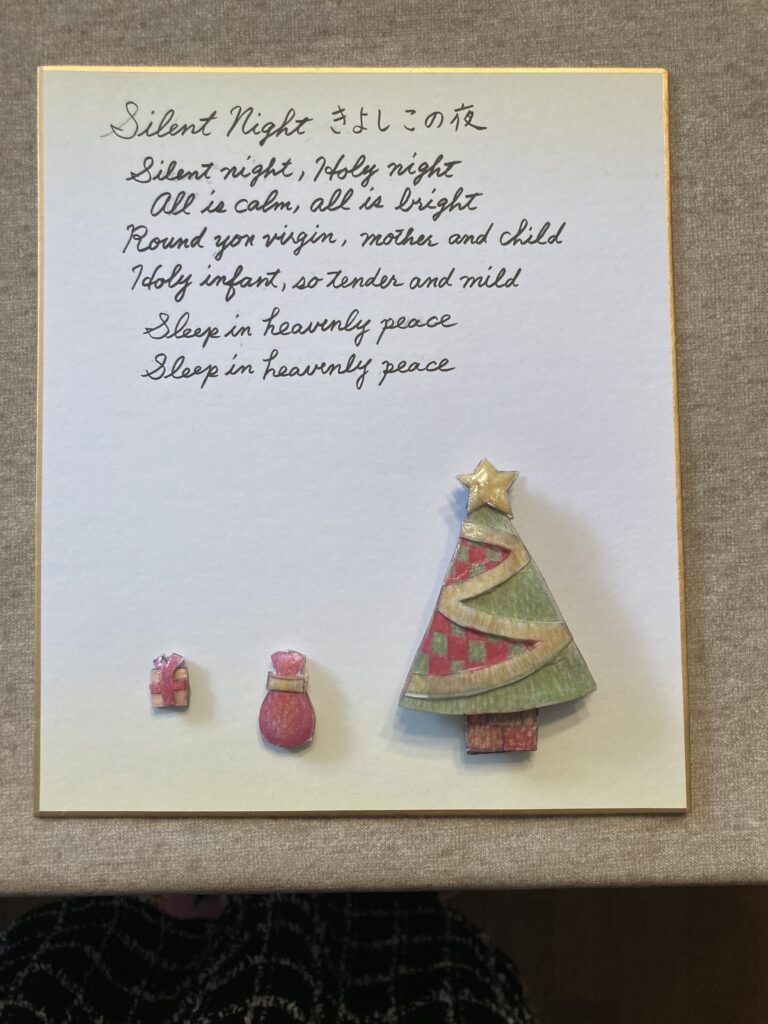 Silent Night きよしこの夜
Silent night, Holy night
All is calm, all is bright
'Round yon virgin, mother and child
Holy infant, so tender and mild
Sleep in heavenly peace
Sleep in heavenly peace